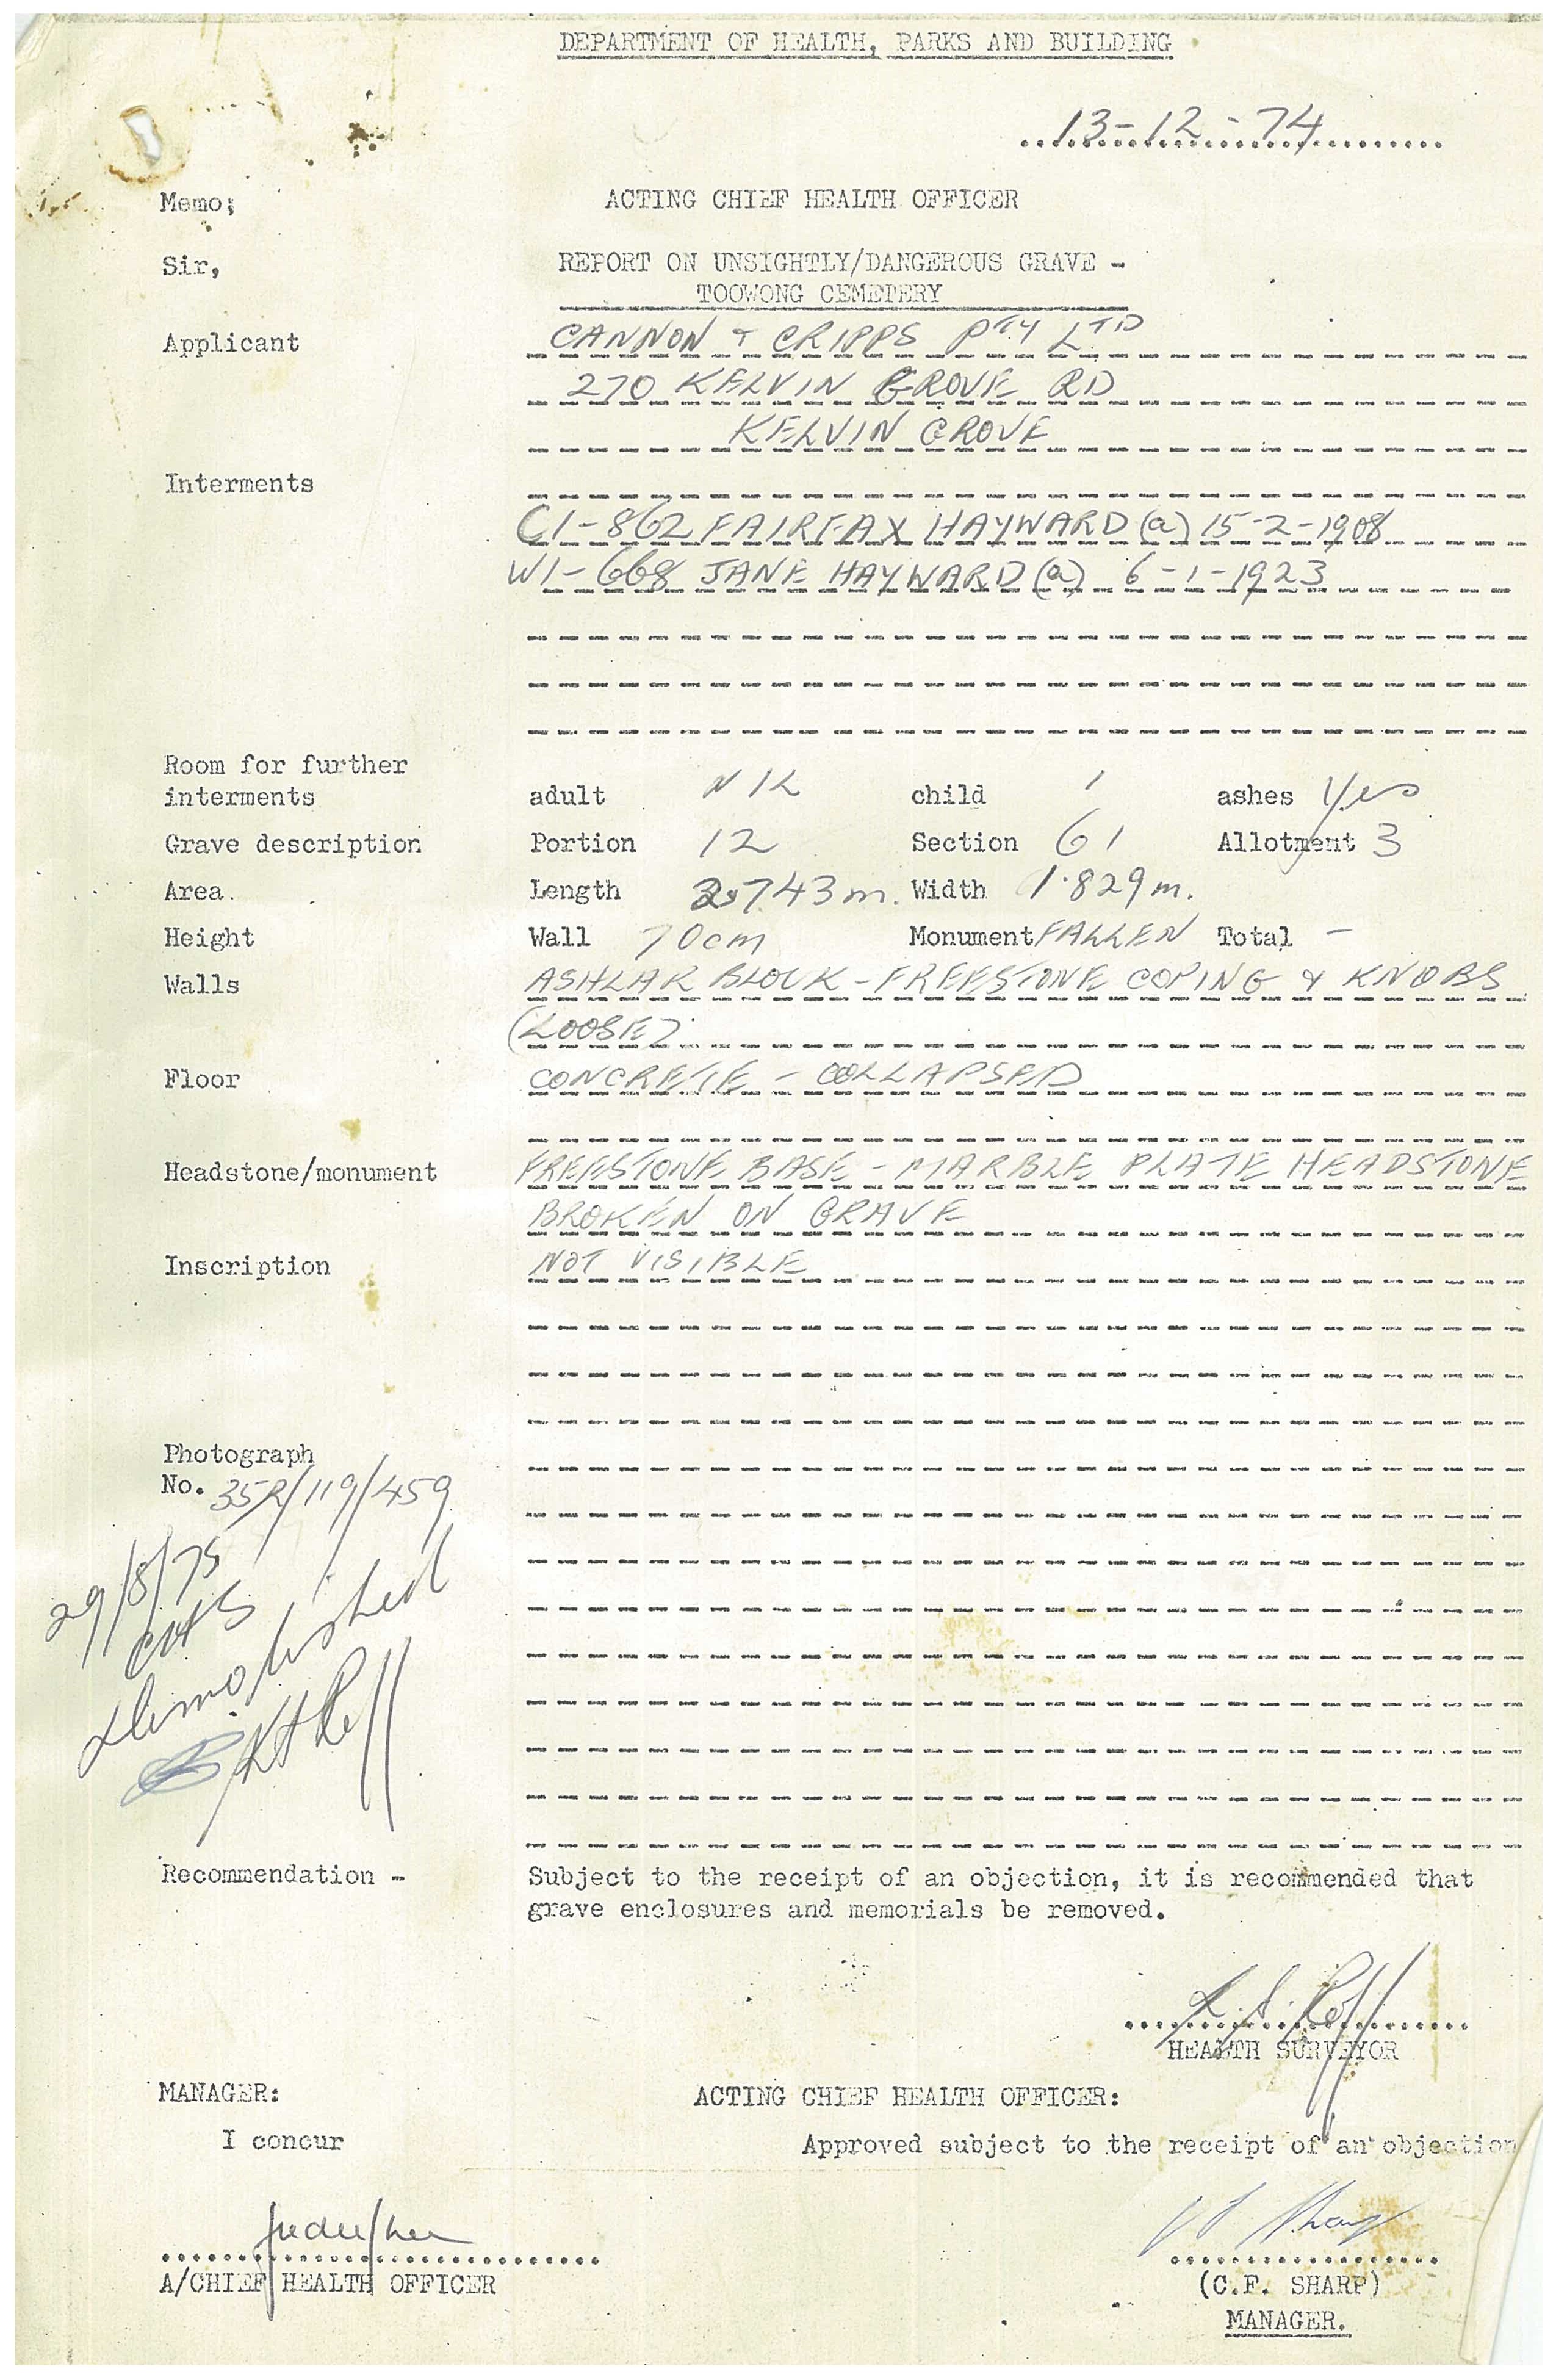 DEPARTMENT OF HEALTH, PARKS AND BUILDING
13-12-74
Memo; ACTING CHIEF HEALTH OFFICER
Sir, REPORT ON UNSIGHTLY/DANGEROUS GRAVE -
TOOWONG CEMETERY
Applicant CANNON & CRIPPS PTY LTD
270 KELVIN GROVE RD
KELVIN GROVE
Interments
C1-862 FAIRFAX HAYWARD (a) 15-2-1908
W1-668 JANE HAYWARD (a) 6-1-1923
Room for further
interments adult NIL child 1 ashes Yes
Grave description Portion 12 Section 61 Allotment 3
Area. Length 2.743m. Width 1.829m.
Height Wall 70cm Monument FALLEN Total -
Walls ASHLAR BLOCK - FREESTONE COPING & KNOBS
(LOOSE)
Floor CONCRETE - COLLAPSED
Headstone/monument FREESTONE BASE - MARBLE PLATE HEADSTONE
BROKEN ON GRAVE
Inscription NOT VISIBLE
Photograph
No. 35R/119/459
29/8/75
demolished
Recommendation - Subject to the receipt of an objection, it is recommended that
grave enclosures and memorials be removed.
HEALTH SURVEYOR
MANAGER: ACTING CHIEF HEALTH OFFICER:
I concur Approved subject to the receipt of an objection
A/CHIEF HEALTH OFFICER (C.F. SHARP)
MANAGER.